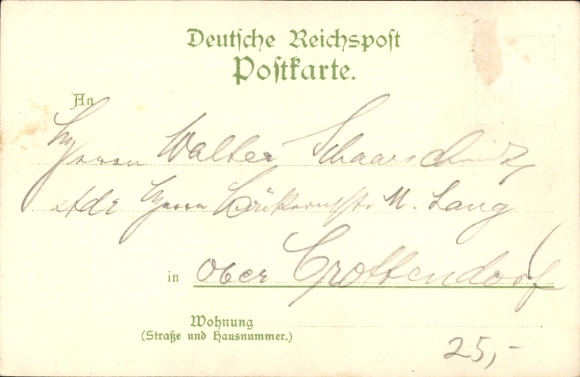 Deutsche Reichspost
Postkarte.
An
Herrn Walter Schaarschmidt
Adr Herrn Bäckermstr M. Lang
in Ober Crottendorf
Wohnung
(Straße und Hausnummer.)
25,-